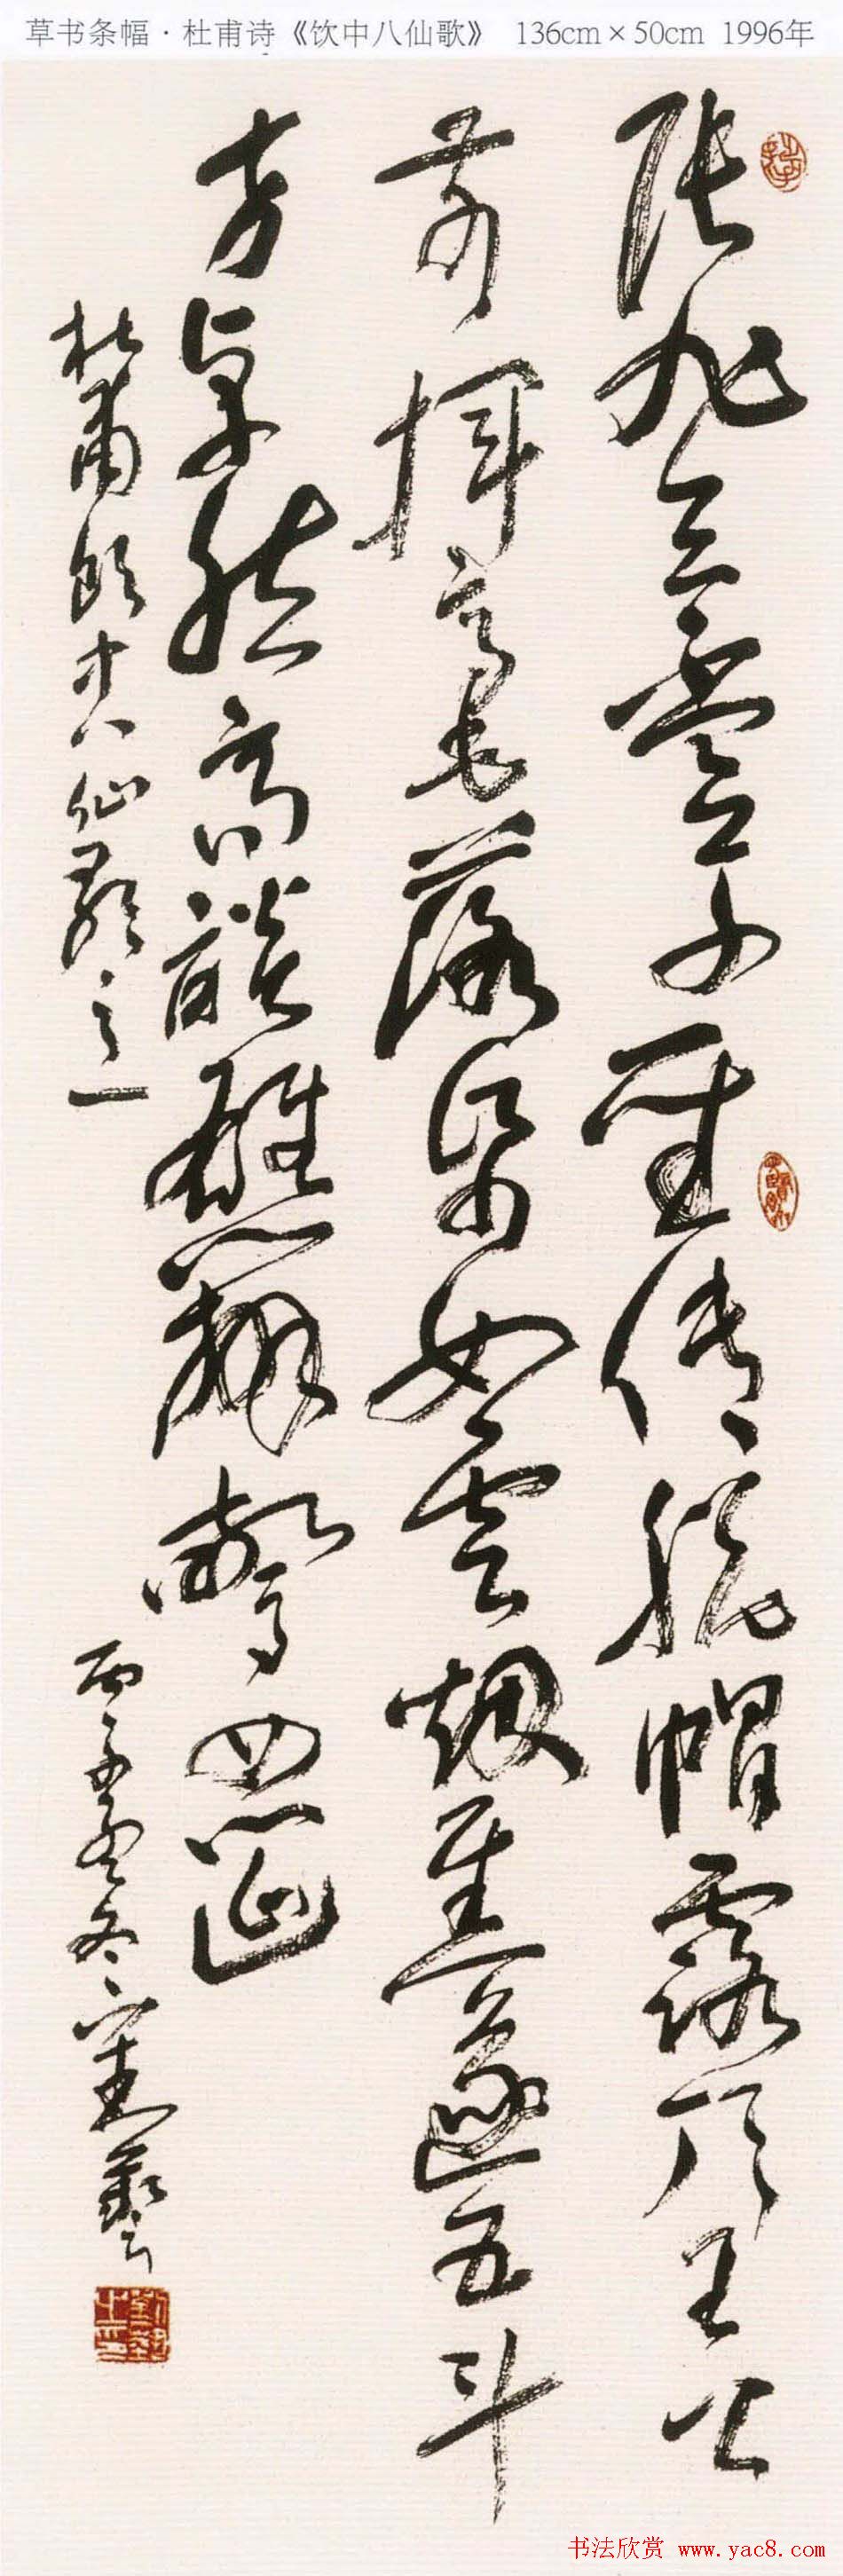 草书条幅·杜甫诗《饮中八仙歌》 136cm×50cm 1996年
張旭三盃草聖傳脫帽露頂王公
前揮毫落紙如雲烟焦遂五斗
方卓然高談雄辯驚四筵
杜甫飲中八仙歌之一
丙子孟冬 藝
书法欣赏 www.yac8.com